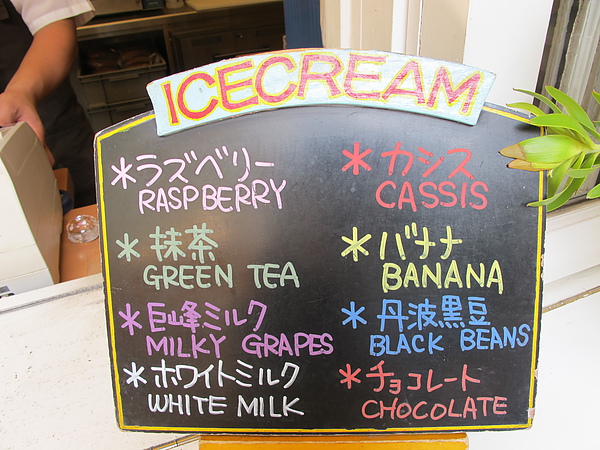 ICECREAM
*ラズベリー
RASPBERRY
*カシス
CASSIS
*抹茶
GREEN TEA
*バナナ
BANANA
*巨峰ミルク
MILKY GRAPES
*丹波黒豆
BLACK BEANS
*ホワイトミルク
WHITE MILK
*チョコレート
CHOCOLATE